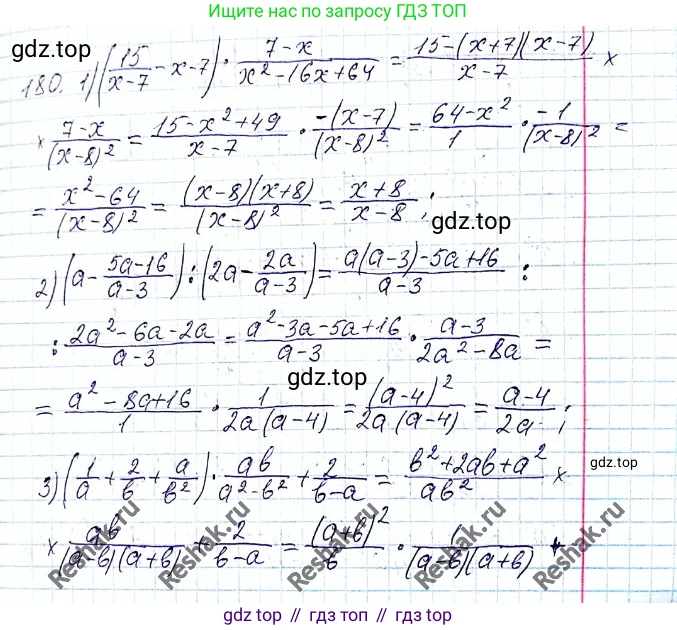 Ищите нас по запросу ГДЗ ТОП
gdz.top
180. 1) (15/(x-7) - x - 7) · (7-x)/(x²-16x+64) = (15-(x+7)(x-7))/(x-7) ×
× (7-x)/(x-8)² = (15-x²+49)/(x-7) · (-(x-7))/(x-8)² = (64-x²)/1 · (-1)/(x-8)² =
= (x²-64)/(x-8)² = ((x-8)(x+8))/(x-8)² = (x+8)/(x-8);
gdz.top
2) (a - (5a-16)/(a-3)) : (2a - 2a/(a-3)) = (a(a-3)-5a+16)/(a-3) :
: (2a²-6a-2a)/(a-3) = (a²-3a-5a+16)/(a-3) · (a-3)/(2a²-8a) =
gdz.top
= (a²-8a+16)/1 · 1/(2a(a-4)) = (a-4)²/(2a(a-4)) = (a-4)/(2a);
gdz.top
3) (1/a + 2/b + a/b²) · ab/(a²-b²) + 2/(b-a) = (b²+2ab+a²)/(ab²) ×
× ab/((a-b)(a+b)) + 2/(b-a) = (a+b)²/b · 1/((a-b)(a+b)) +
Reshak.ru
Reshak.ru
Reshak.ru
Reshak.ru
gdz top // гдз топ // гдз top // gdz топ